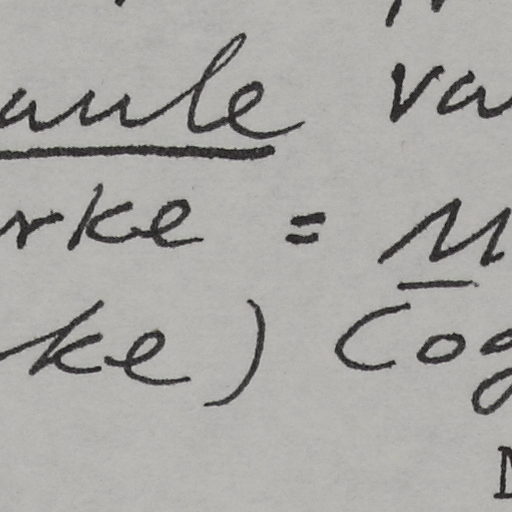 aule va
rke = M
ke) Cog